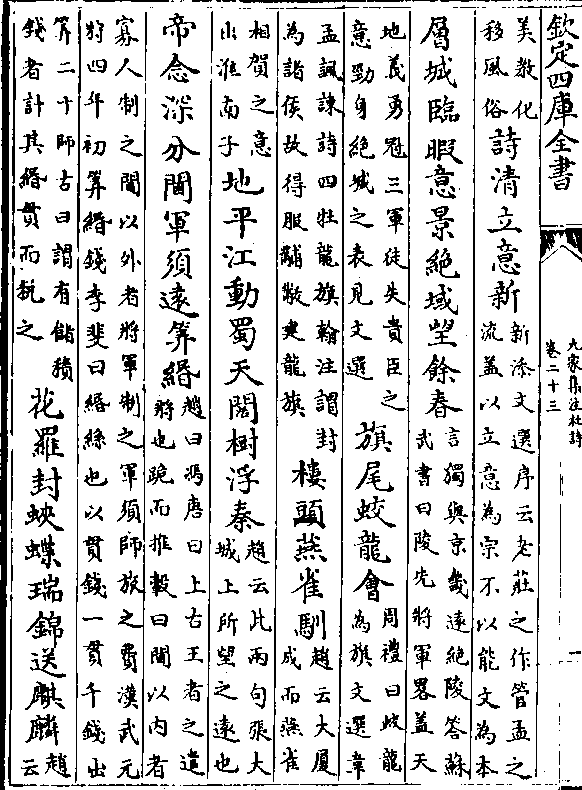 欽定四庫全書
九家集注杜詩
卷二十三
一
美教化
移風俗
詩清立意新
新添文選序云老莊之作管孟之
流盖以立意為宗不以能文為本
層城臨暇意景絶域望餘春
言獨與京畿遠絶陵答蘇
武書曰陵先將軍畧盖天
地義勇冠三軍徒失貴臣之
意勁身絶域之表見文選
旗尾蛟龍會
周禮曰蛟龍
為旗文選韋
孟諷諫詩四牡龍旗翰注謂封
為諸侯故得服黼黻建龍旗
樓頭燕雀馴
趙云大厦
成而燕雀
相賀之意
出淮南子
地平江動蜀天闊樹浮秦
趙云此兩句張大
城上所望之遠也
帝念深分閫軍須遠筭緡
趙曰馮唐曰上古王者之遣
將也跪而推轂曰閫以内者
寡人制之閫以外者將軍制之軍須師旅之費漢武元
狩四年初筭緡錢李斐曰緡絲也以貫錢一貫千錢出
筭二十師古曰謂有儲積
錢者計其緡貫而税之
花羅封蛺蝶瑞錦送麒麟
趙
云